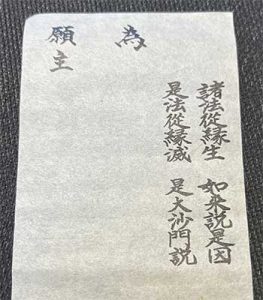 諸法從緣生 如來說是因
是法從緣滅 是大沙門説
為
願主